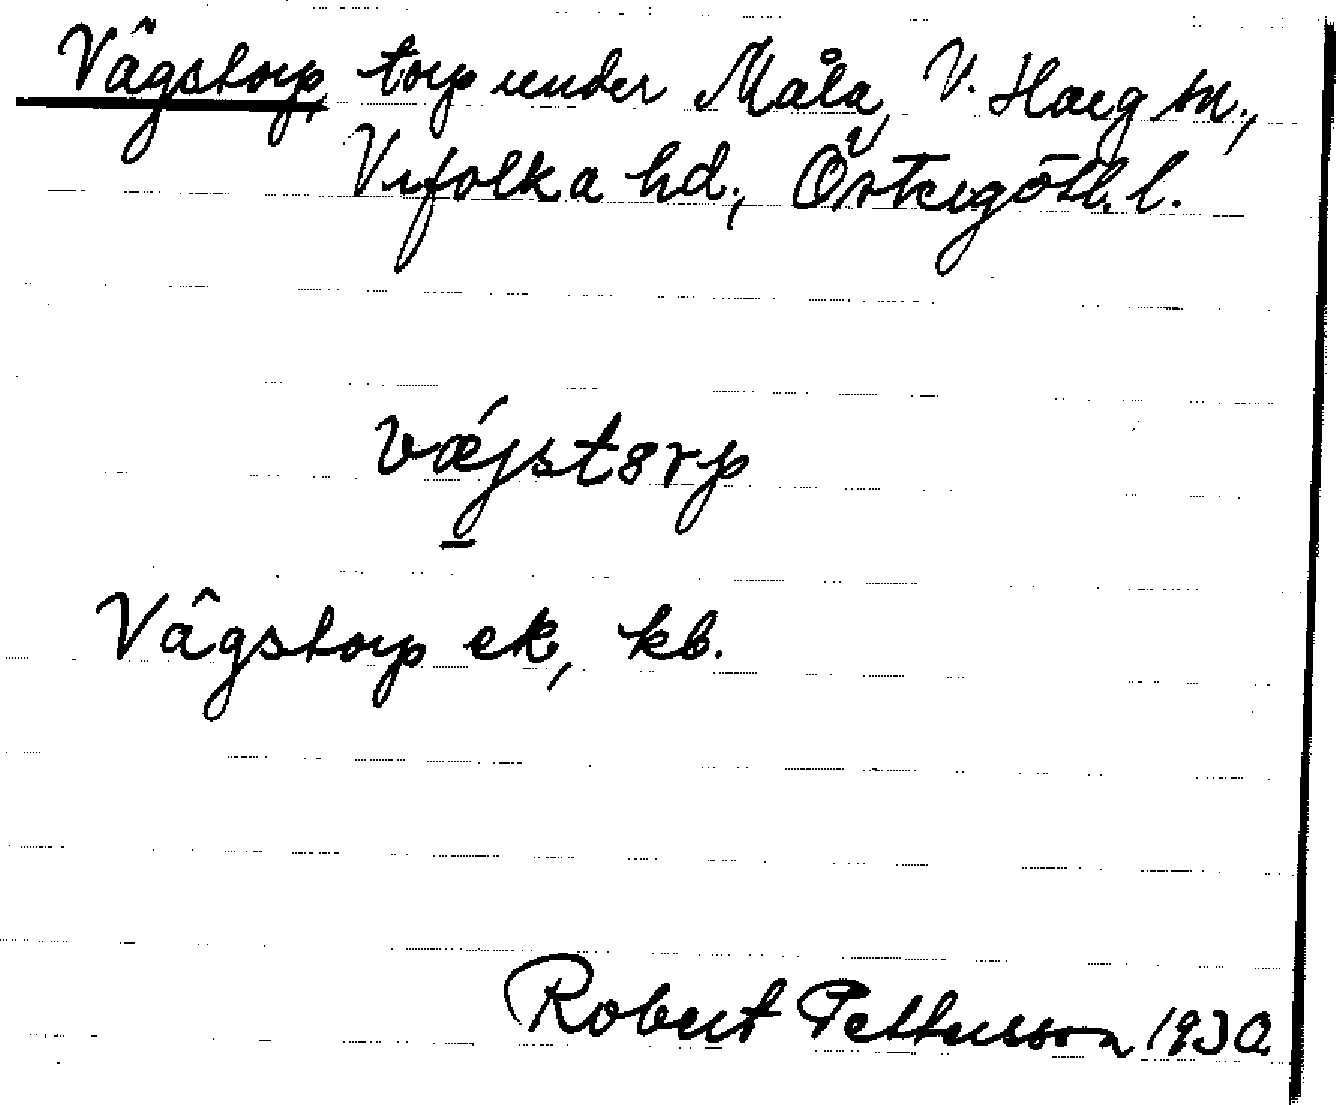 Vägstorp, torp under Måla, V. Harg sn.,
Vifolka hd., Östergötl. l.
væjstorp
Vägstorp ek, kb.
Robert Pettersson 1930